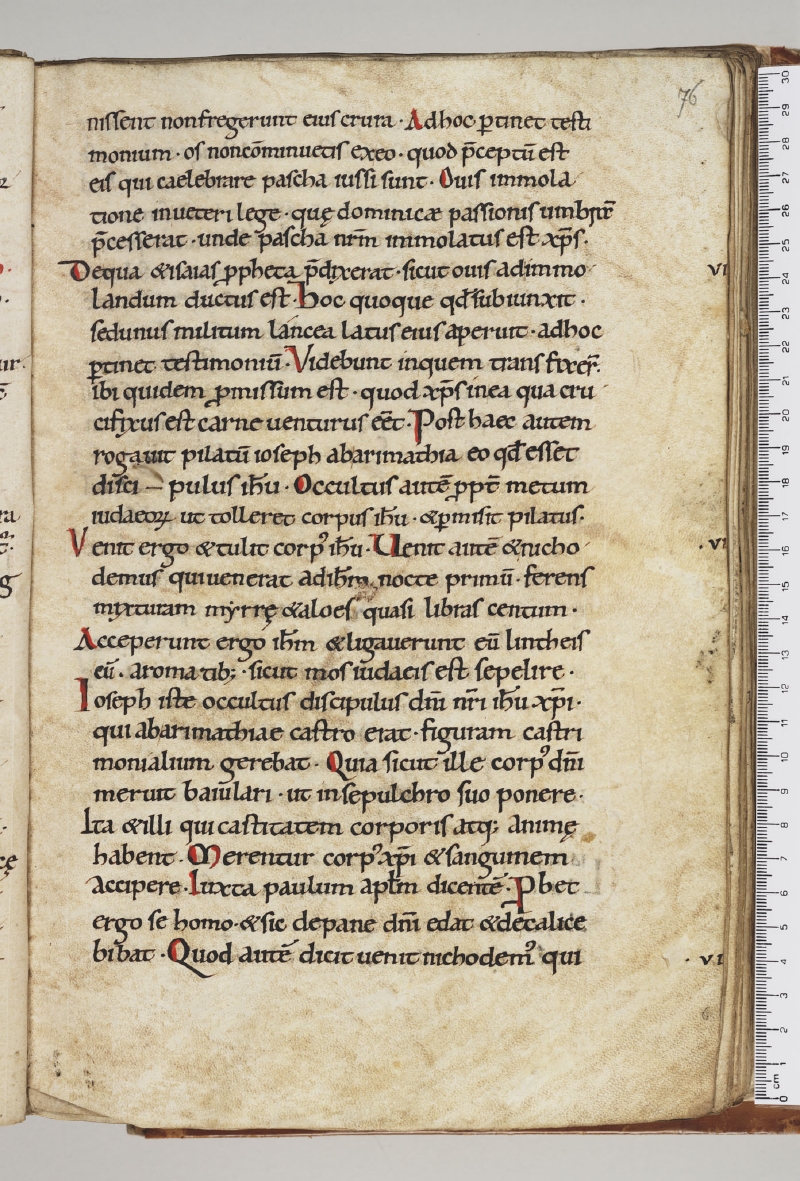 76
nissent non fregerunt eius crura · Ad hoc ꝑtinet testi
monium · os non cōminuetis ex eo · quod p̄ceptū est
eis qui caelebrare pascha iussi sunt · Ouis immola
tione in ueteri lege · quę dominicæ passionis umbra
p̄cesserat · unde pascha nr̄m immolatus est xp̄s ·
De qua & isaias ꝓpheta p̄dixerat · sicut ouis ad immo
landum ductus est · Hoc quoque qđ subiunxit ·
sed unus militum lancea latus eius aperuit · ad hoc
ꝑtinet testimoniū · Videbunt in quem transfixer̄ ·
ibi quidem ꝓmissum est · quod xp̄s in ea qua cru
cifixus est carne uenturus eēt · Post haec autem
rogauit pilatū ioseph ab arimathia eo qđ esset
disci – pulus ih̄u · Occultus autē ꝓpt̄ metum
iudaeoꝝ ut tolleret corpus ih̄u · & ꝑmisit pilatus ·
Venit ergo & tulit corpꝰ ih̄u · Uenit autē & nicho
demus qui uenerat ad ih̄m nocte primū · ferens
mixturam myrrę & aloes quasi libras centum ·
Acceperunt ergo ih̄m & ligauerunt eū lintheis
eū · aromatib; · sicut mos iudaeis est sepelire ·
Ioseph iste occultus discipulus dn̄i nr̄i ih̄u xp̄i ·
qui ab arimathiae castro erat · figuram castri
monialium gerebat · Quia sicut ille corpꝰ dn̄i
meruit baiulari · ut in sepulchro suo ponere ·
Ita & illi qui castitatem corporis atq; animę
habent · Merentur corpꝰ xp̄i & sanguinem
accipere · Iuxta paulum apl̄m dicentē · Pbet
ergo se homo · & sic de pane dn̄i edat & de calice
bibat · Quod autē dicit uenit nichodemꝰ qui